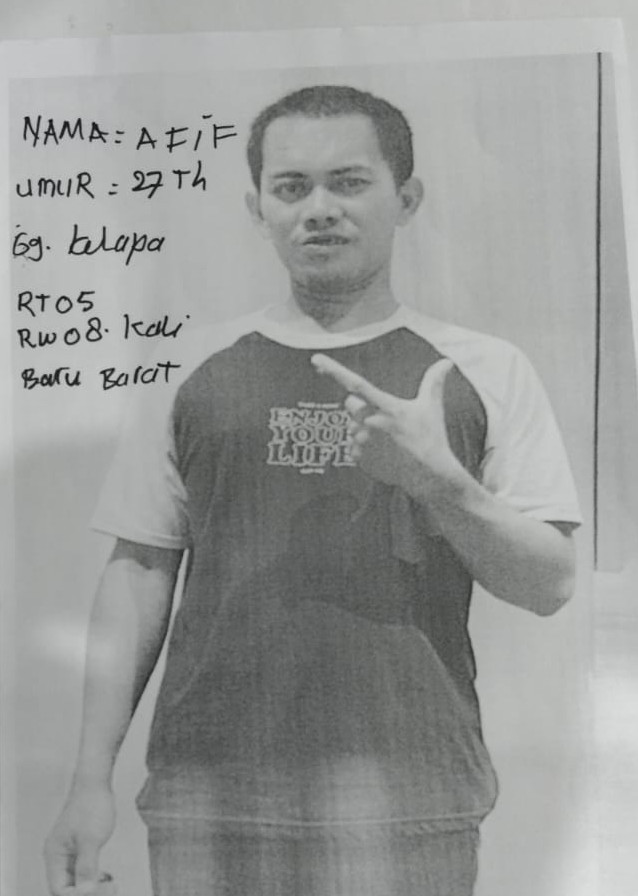 NAMA = AFIF
UMUR = 27 Th
Gg. kelapa
RT 05
RW 08. Kali
Baru Barat
ENJOY
YOUR
LIFE